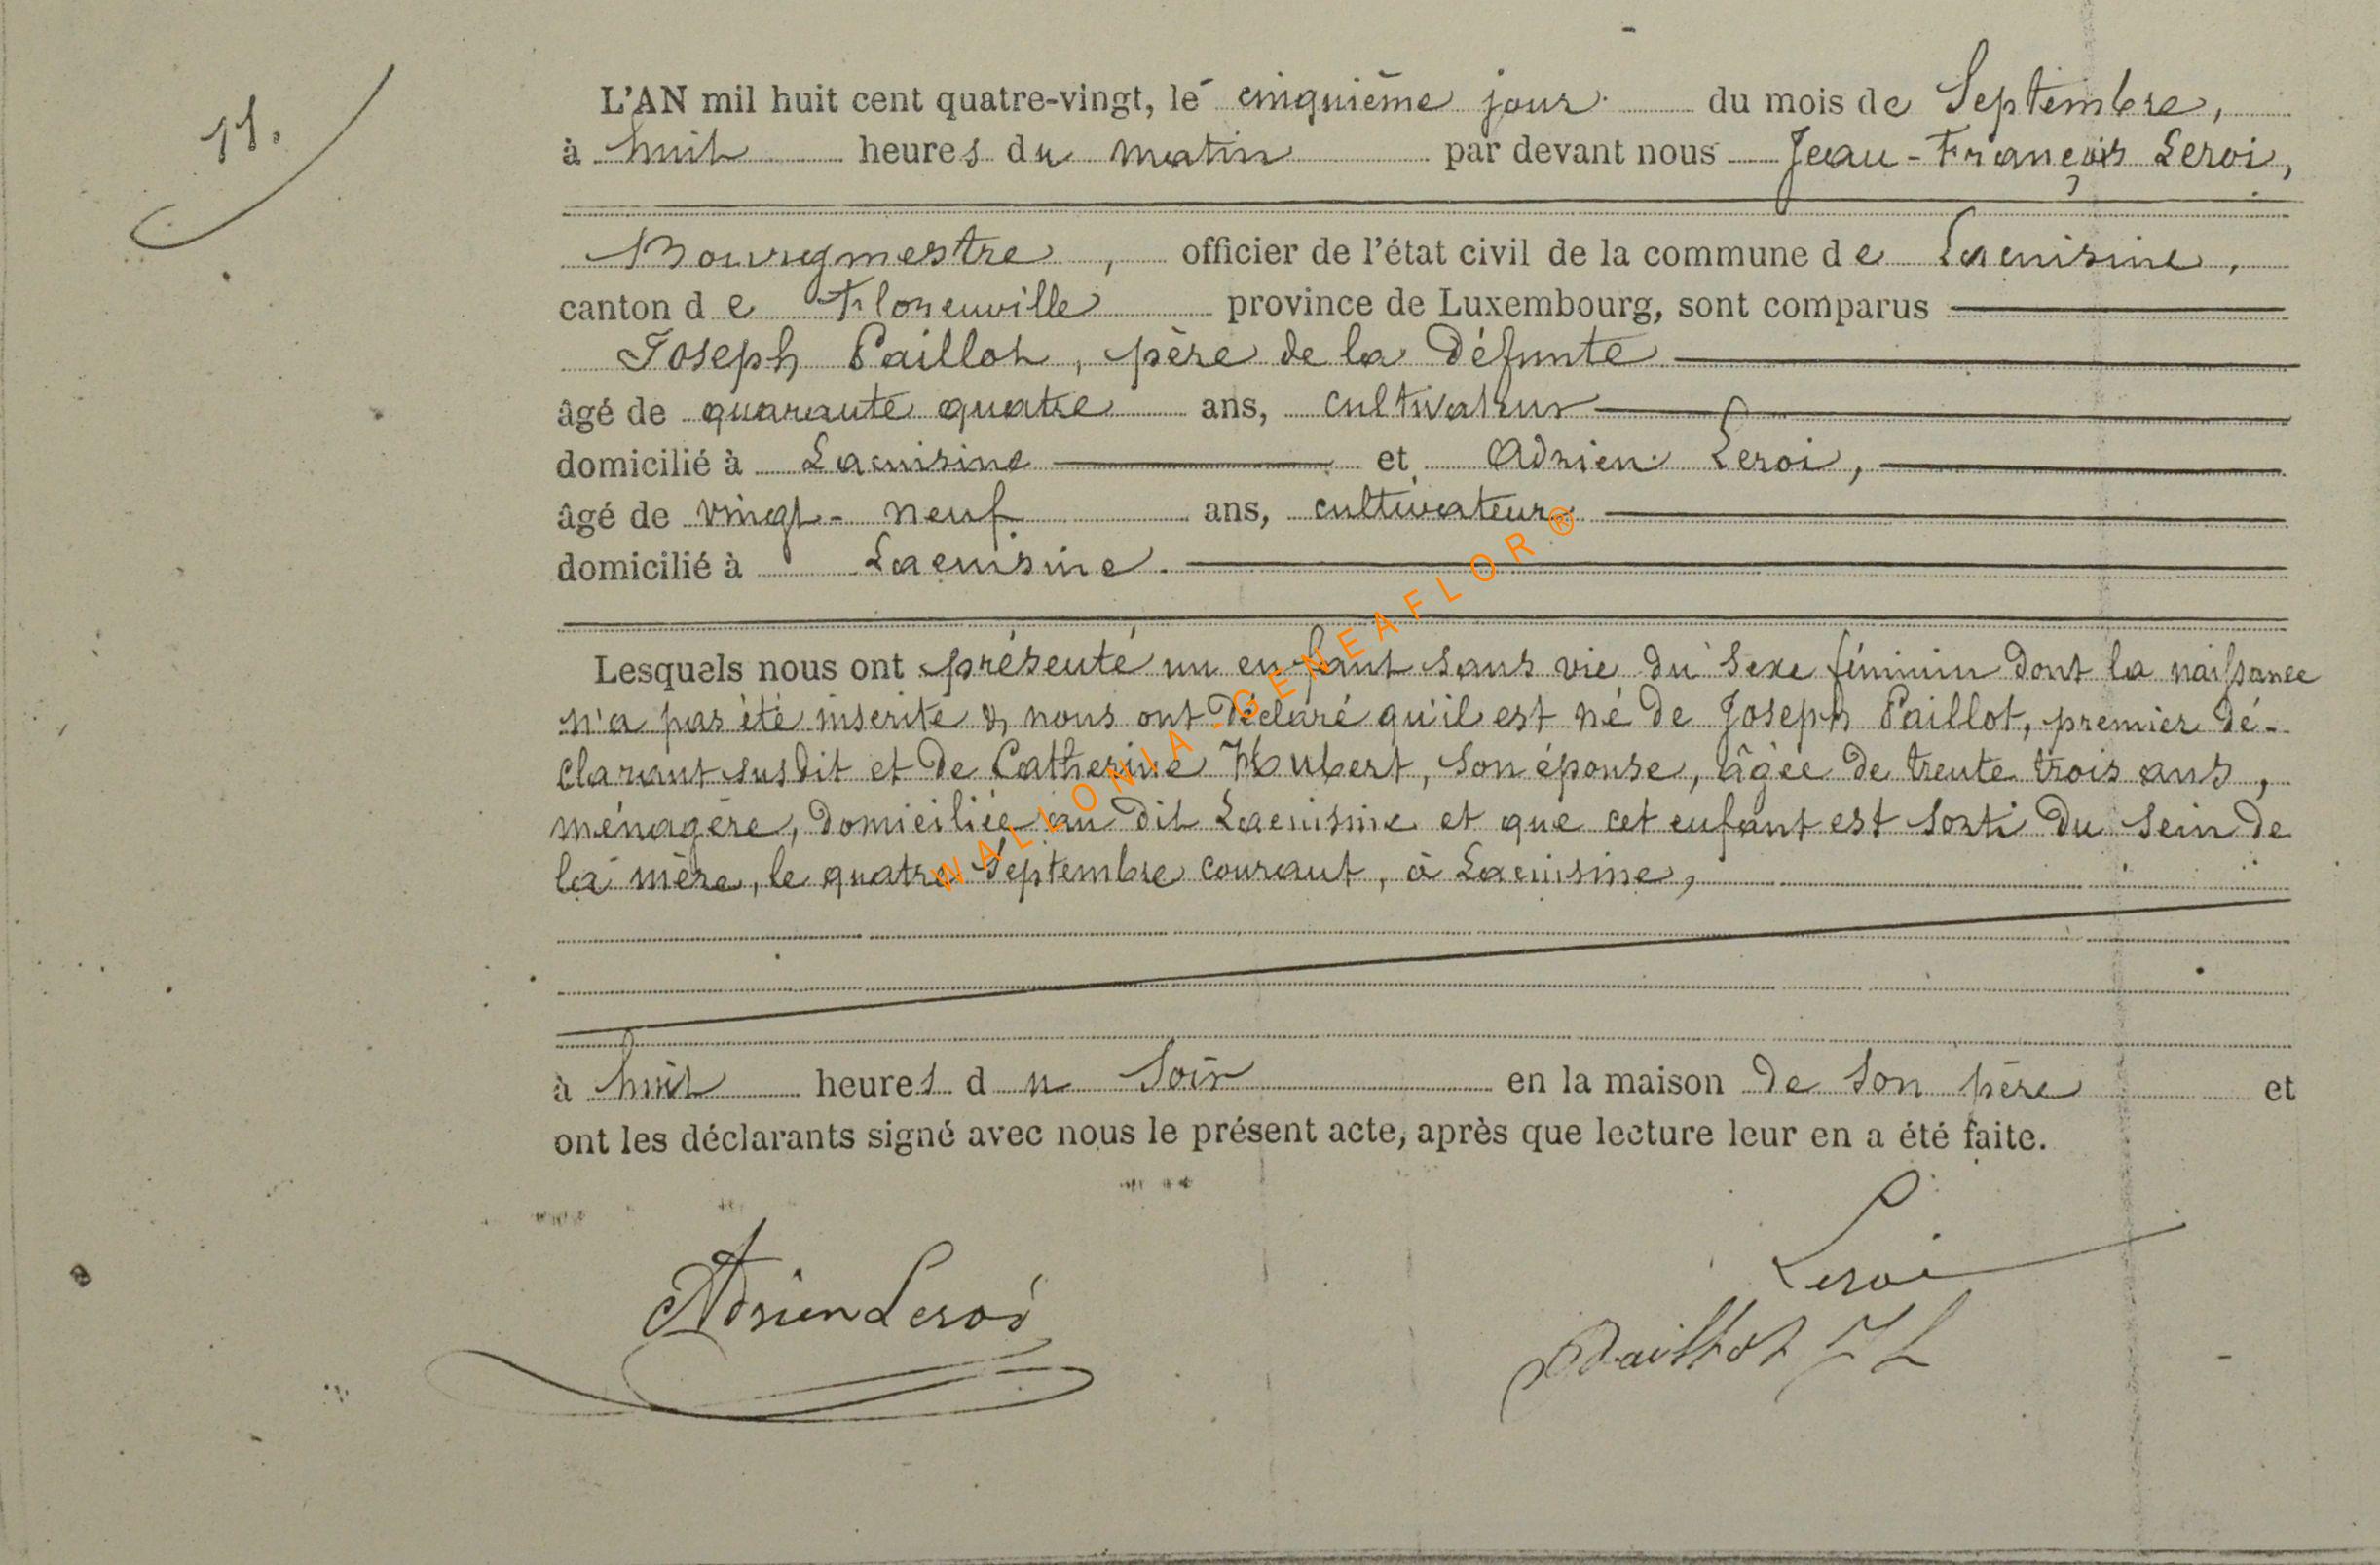 11.
L'AN mil huit cent quatre-vingt, le cinquième jour du mois de Septembre,
à huit heures du matin par devant nous Jean-François Leroi,
Bourgmestre, officier de l'état civil de la commune de Lacuisine,
canton de Florenville province de Luxembourg, sont comparus
Joseph Paillot, père de la défunte
âgé de quarante quatre ans, cultivateur
domicilié à Lacuisine et Adrien Leroi,
âgé de vingt-neuf ans, cultivateur
domicilié à Lacuisine.
Lesquels nous ont présenté un enfant sans vie du sexe féminin dont la naissance
n'a pas été inscrite & nous ont déclaré qu'il est né de Joseph Paillot, premier dé-
clarant susdit et de Catherine Hubert, son épouse, âgée de trente trois ans,
ménagère, domiciliée au dit Lacuisine et que cet enfant est sorti du sein de
la mère, le quatre Septembre courant, à Lacuisine,
à huit heures du soir en la maison de son père et
ont les déclarants signé avec nous le présent acte, après que lecture leur en a été faite.
Leroi
Adrien Leroi
Paillot
WALLONIA-GENEAFLOR®